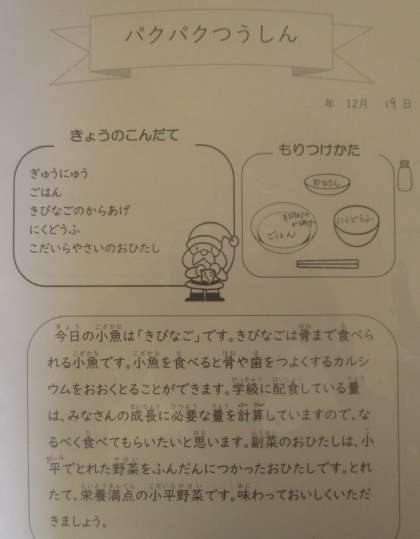 パクパクつうしん
年 12月 19日
きょうのこんだて
ぎゅうにゅう
ごはん
きびなごのからあげ
にくどうふ
こだいらやさいのおひたし
もりつけかた
ごはん
にくどうふ
今日の小魚は「きびなご」です。きびなごは骨まで食べら
れる小魚です。小魚を食べると骨や歯をつよくするカルシ
ウムをおおくとることができます。学級に配食している量
は、みなさんの成長に必要な量を計算していますので、な
るべく食べてもらいたいと思います。副菜のおひたしは、小
平でとれた野菜をふんだんにつかったおひたしです。とれ
たて、栄養満点の小平野菜です。味わっておいしくいただ
きましょう。